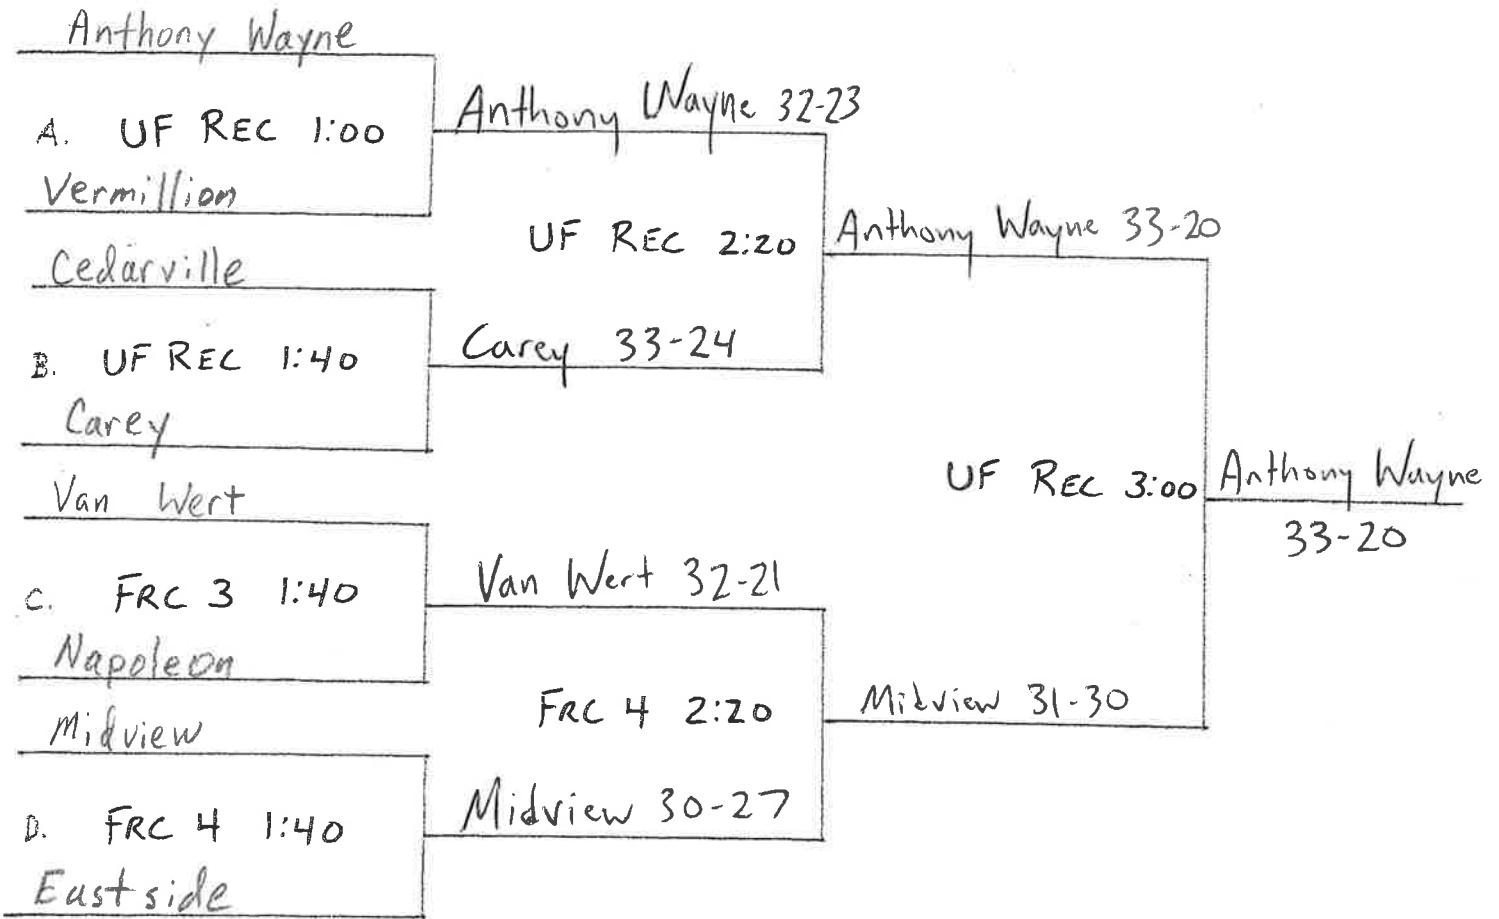 Anthony Wayne
A. UF REC 1:00
Vermillion
Cedarville
B. UF REC 1:40
Carey
Van Wert
C. FRC 3 1:40
Napoleon
Midview
D. FRC 4 1:40
Eastside
Anthony Wayne 32-23
UF REC 2:20
Carey 33-24
Van Wert 32-21
FRC 4 2:20
Midview 30-27
Anthony Wayne 33-20
UF REC 3:00
Midview 31-30
Anthony Wayne
33-20